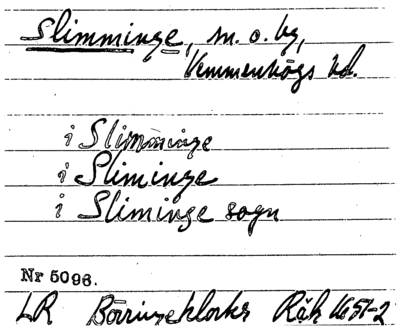 Slimminge, m. o. by,
Vemmenhögs hd.
i Slimminge
i Sliminge
i Sliminge sogn
Nr 5096.
LR Börringeklosters Räk 1651-2